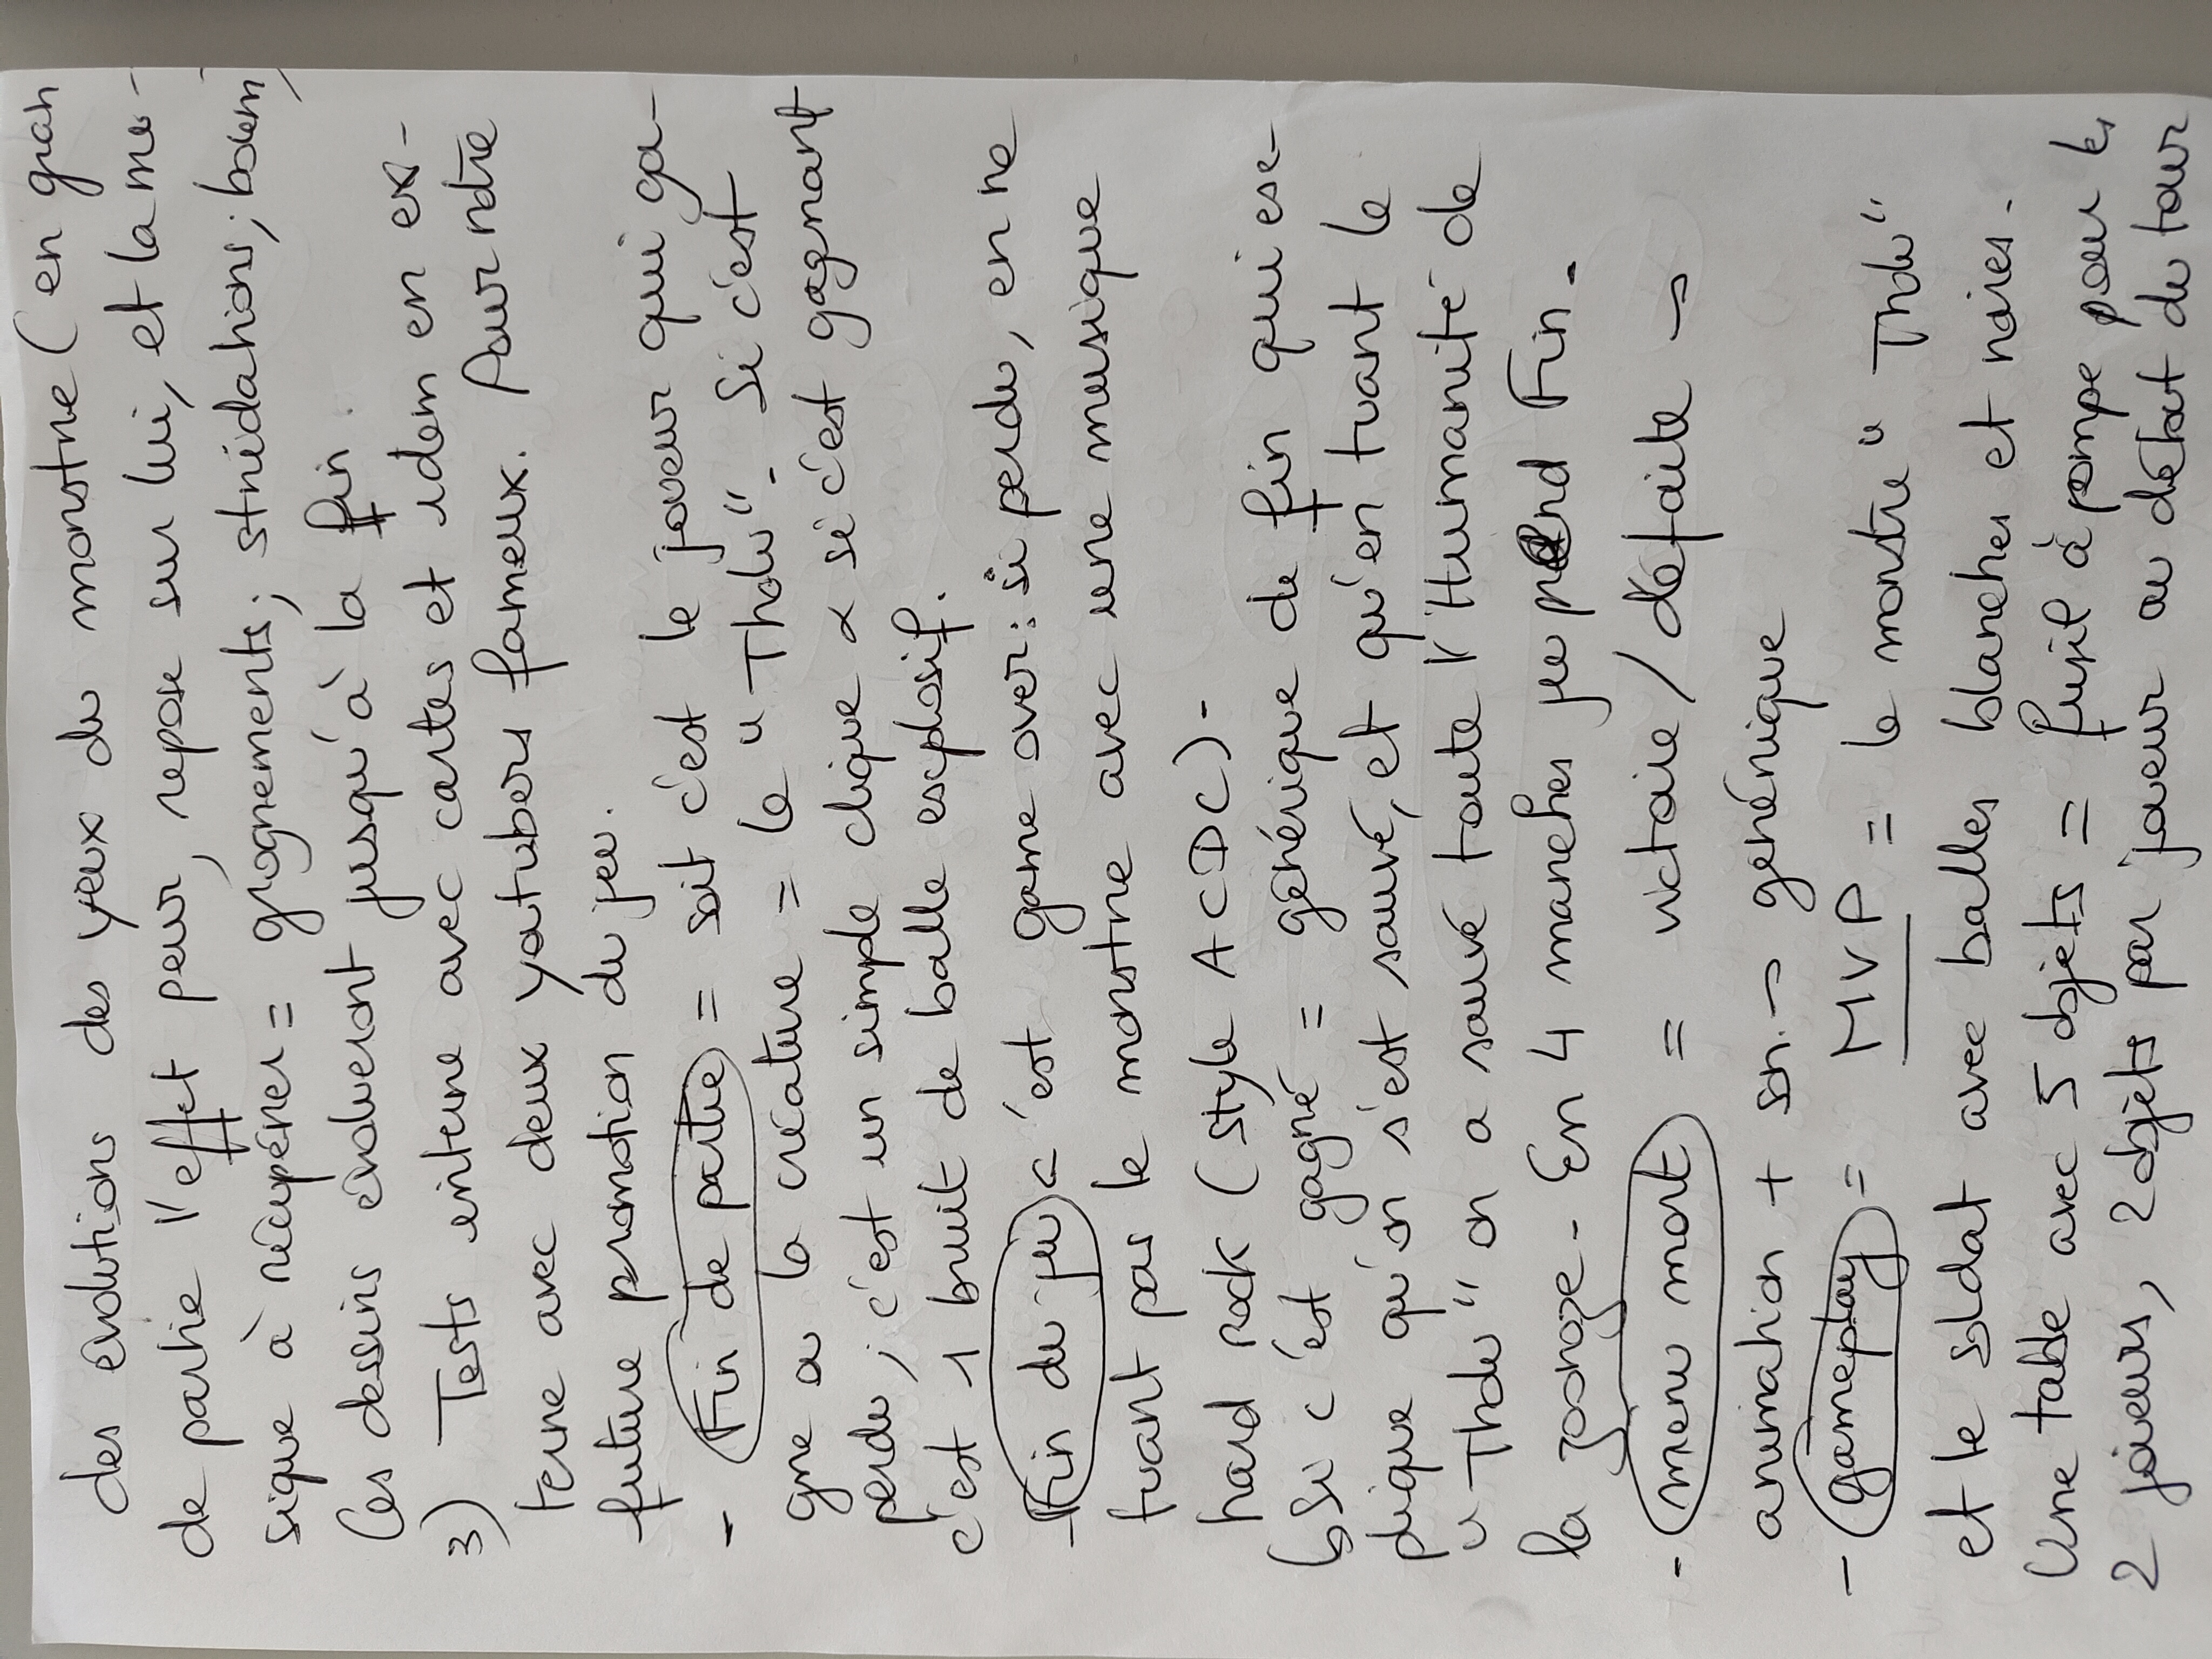 des évolutions des yeux du monstre (en gran
de partie l'effet peur, repose sur lui, et la mu-
sique à récupérer = grognements; stridations; boum,
Ces dessins évolueront jusqu'à la fin.
3) Tests interne avec cartes et idem en ex-
terne avec deux yotubers fameux. Pour notre
future promotion du jeu.
- Fin de partie = soit c'est le joueur qui ga-
gne ou la créature = le "Tholu". Si c'est
perdu, c'est un simple clique & si c'est gagnant
c'est 1 bruit de balle explosif.
- Fin du jeu c'est game over: si perdu, en ne
tuant pas le monstre avec une musique
hard rock (style ACDC)-
↳ Si c'est gagné = générique de fin qui ex-
plique qu'on s'est sauvé, et qu'en tuant le
"Tholu" on a sauvé toute l'Humanité de
la zoonoze - En 4 manches jeu prend Fin.
- menu mort = victoire / défaite →
animation + son. → générique
- gameplay = MVP = le monstre "Tholu"
et le soldat avec balles blanches et noires.
Une table avec 5 objets = fusil à pompe pour les
2 joueurs, 2 objets par joueur au début du tour